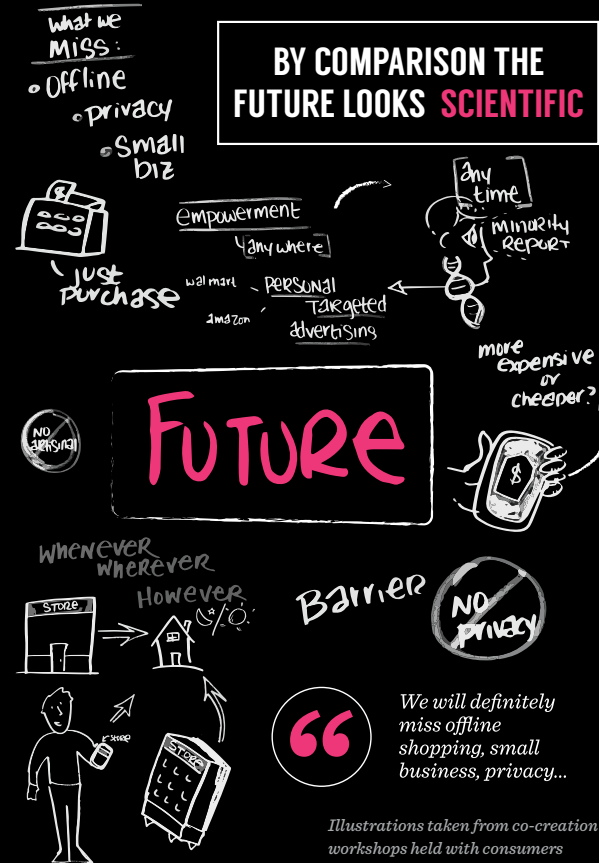 What we
Miss:
Offline
privacy
Small
biz
BY COMPARISON THE
FUTURE LOOKS SCIENTIFIC
$
Just
purchase
empowerment
anywhere
any
time
MINORITY
REPORT
walmart
PERSONAL
amazon
TARGETED
advertising
more
expensive
or
cheaper?
FUTURE
NO
artisinal
$
WHENEVER
WHEREVER
However
STORE
Barrier
NO
privacy
STORE
STORE
“
We will definitely
miss offline
shopping, small
business, privacy...
Illustrations taken from co-creation
workshops held with consumers